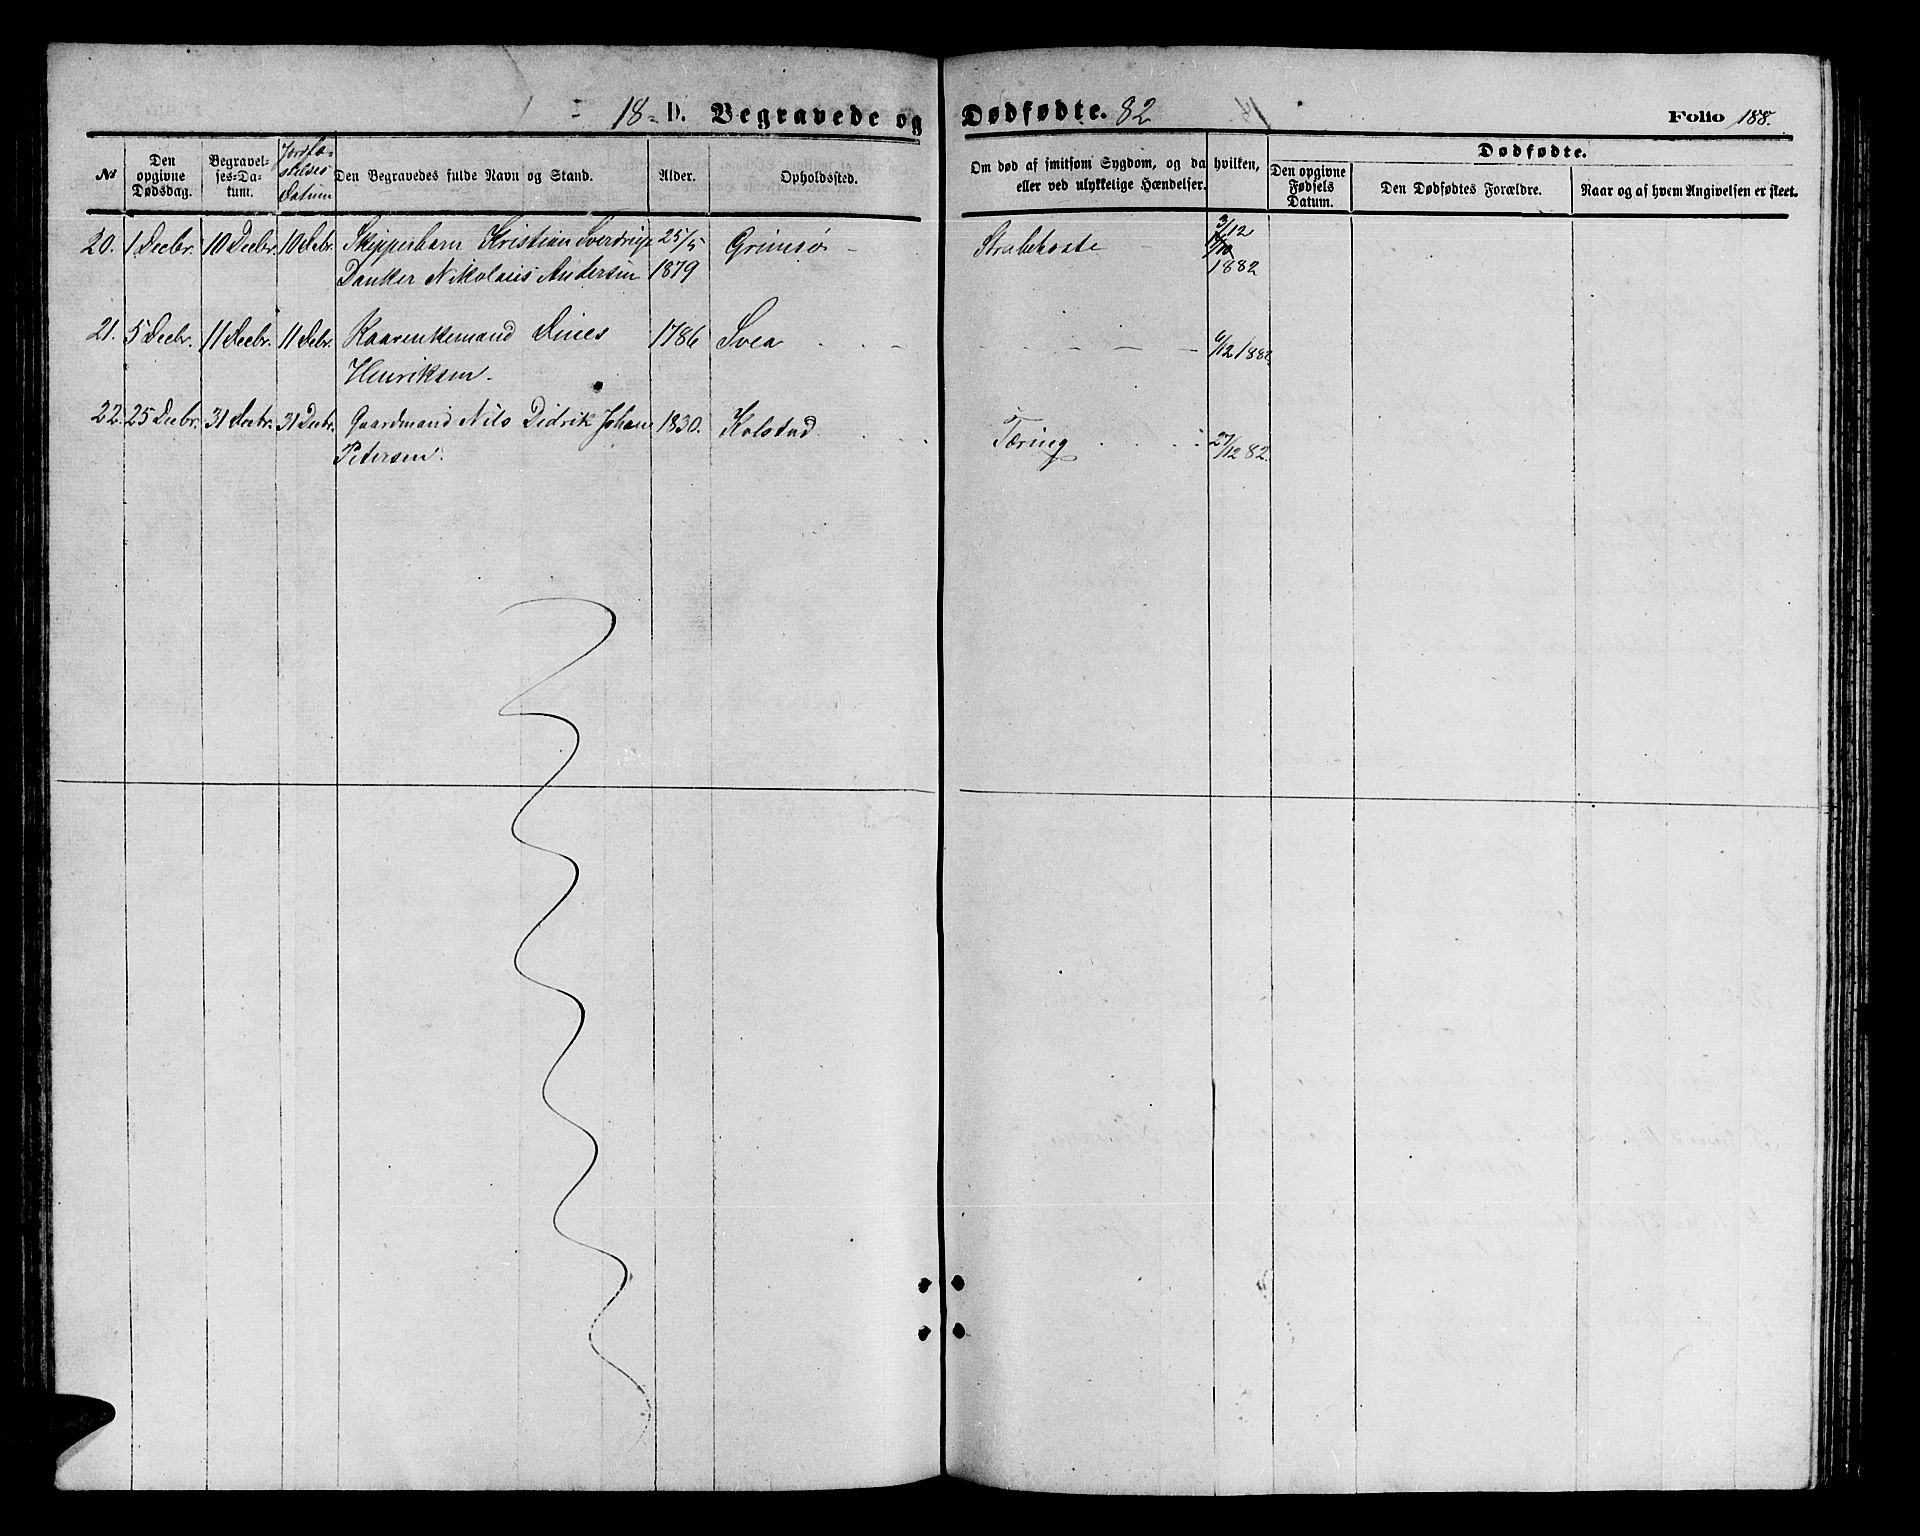 18- D. Begravede og Dødfødte. 82
Folio 188.
№
Den opgivne Dødsdag.
Begravel-
ses-Da-
tum.
Jordfæ-
stelses
Datum
Den Begravedes fulde Navn og Stand.
Alder.
Opholdssted.
Om død af smitsom Sygdom, og da hvilken,
eller ved ulykkelige Hændelser.
Dødfødte.
Den opgivne
Fødsels
Datum.
Den Dødfødtes Forældre.
Naar og af hvem Angivelsen er skeet.
20. 1 Decbr. 10 Decbr. 10 Debr. Skipperbarn Kristian Sverdrup 25/5 Grimsø - Strubehoste 3/12
Danker Nikolais Andersen 1879 1882
21. 5 Decbr. 11 Decbr. 11 Debr. Kaarenkemand Dines 1786 Svea 6/12 1882
Henriksen.
22. 25 Decbr. 31 Decbr. 31 Decbr. Gaardmand Nils Didrik Johan 1830. Kolstad Tæring 27/12 82.
Petersen.